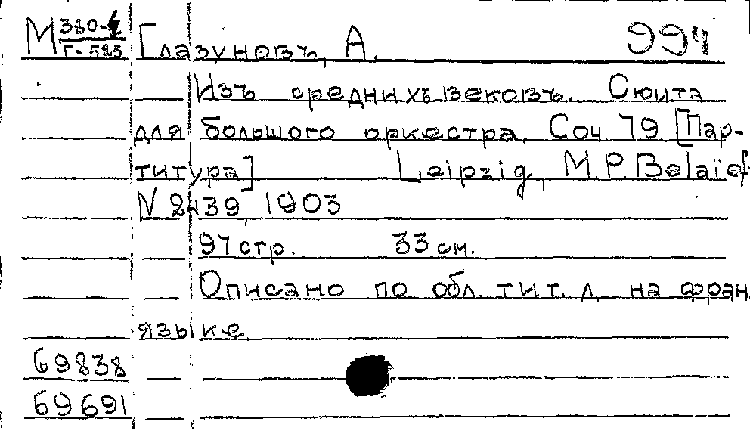 М 380-4 Глазуновъ, А. 994
Г-583
Изъ среднихъ вековъ. Сюита
для большого оркестра. Соч 79 [Пар-
титура] Leipzig, M.P. Belaïef
N 2439 1903
97 стр. 33 см.
Описано по обл. тит. л. на фран.
языке
69838
69691